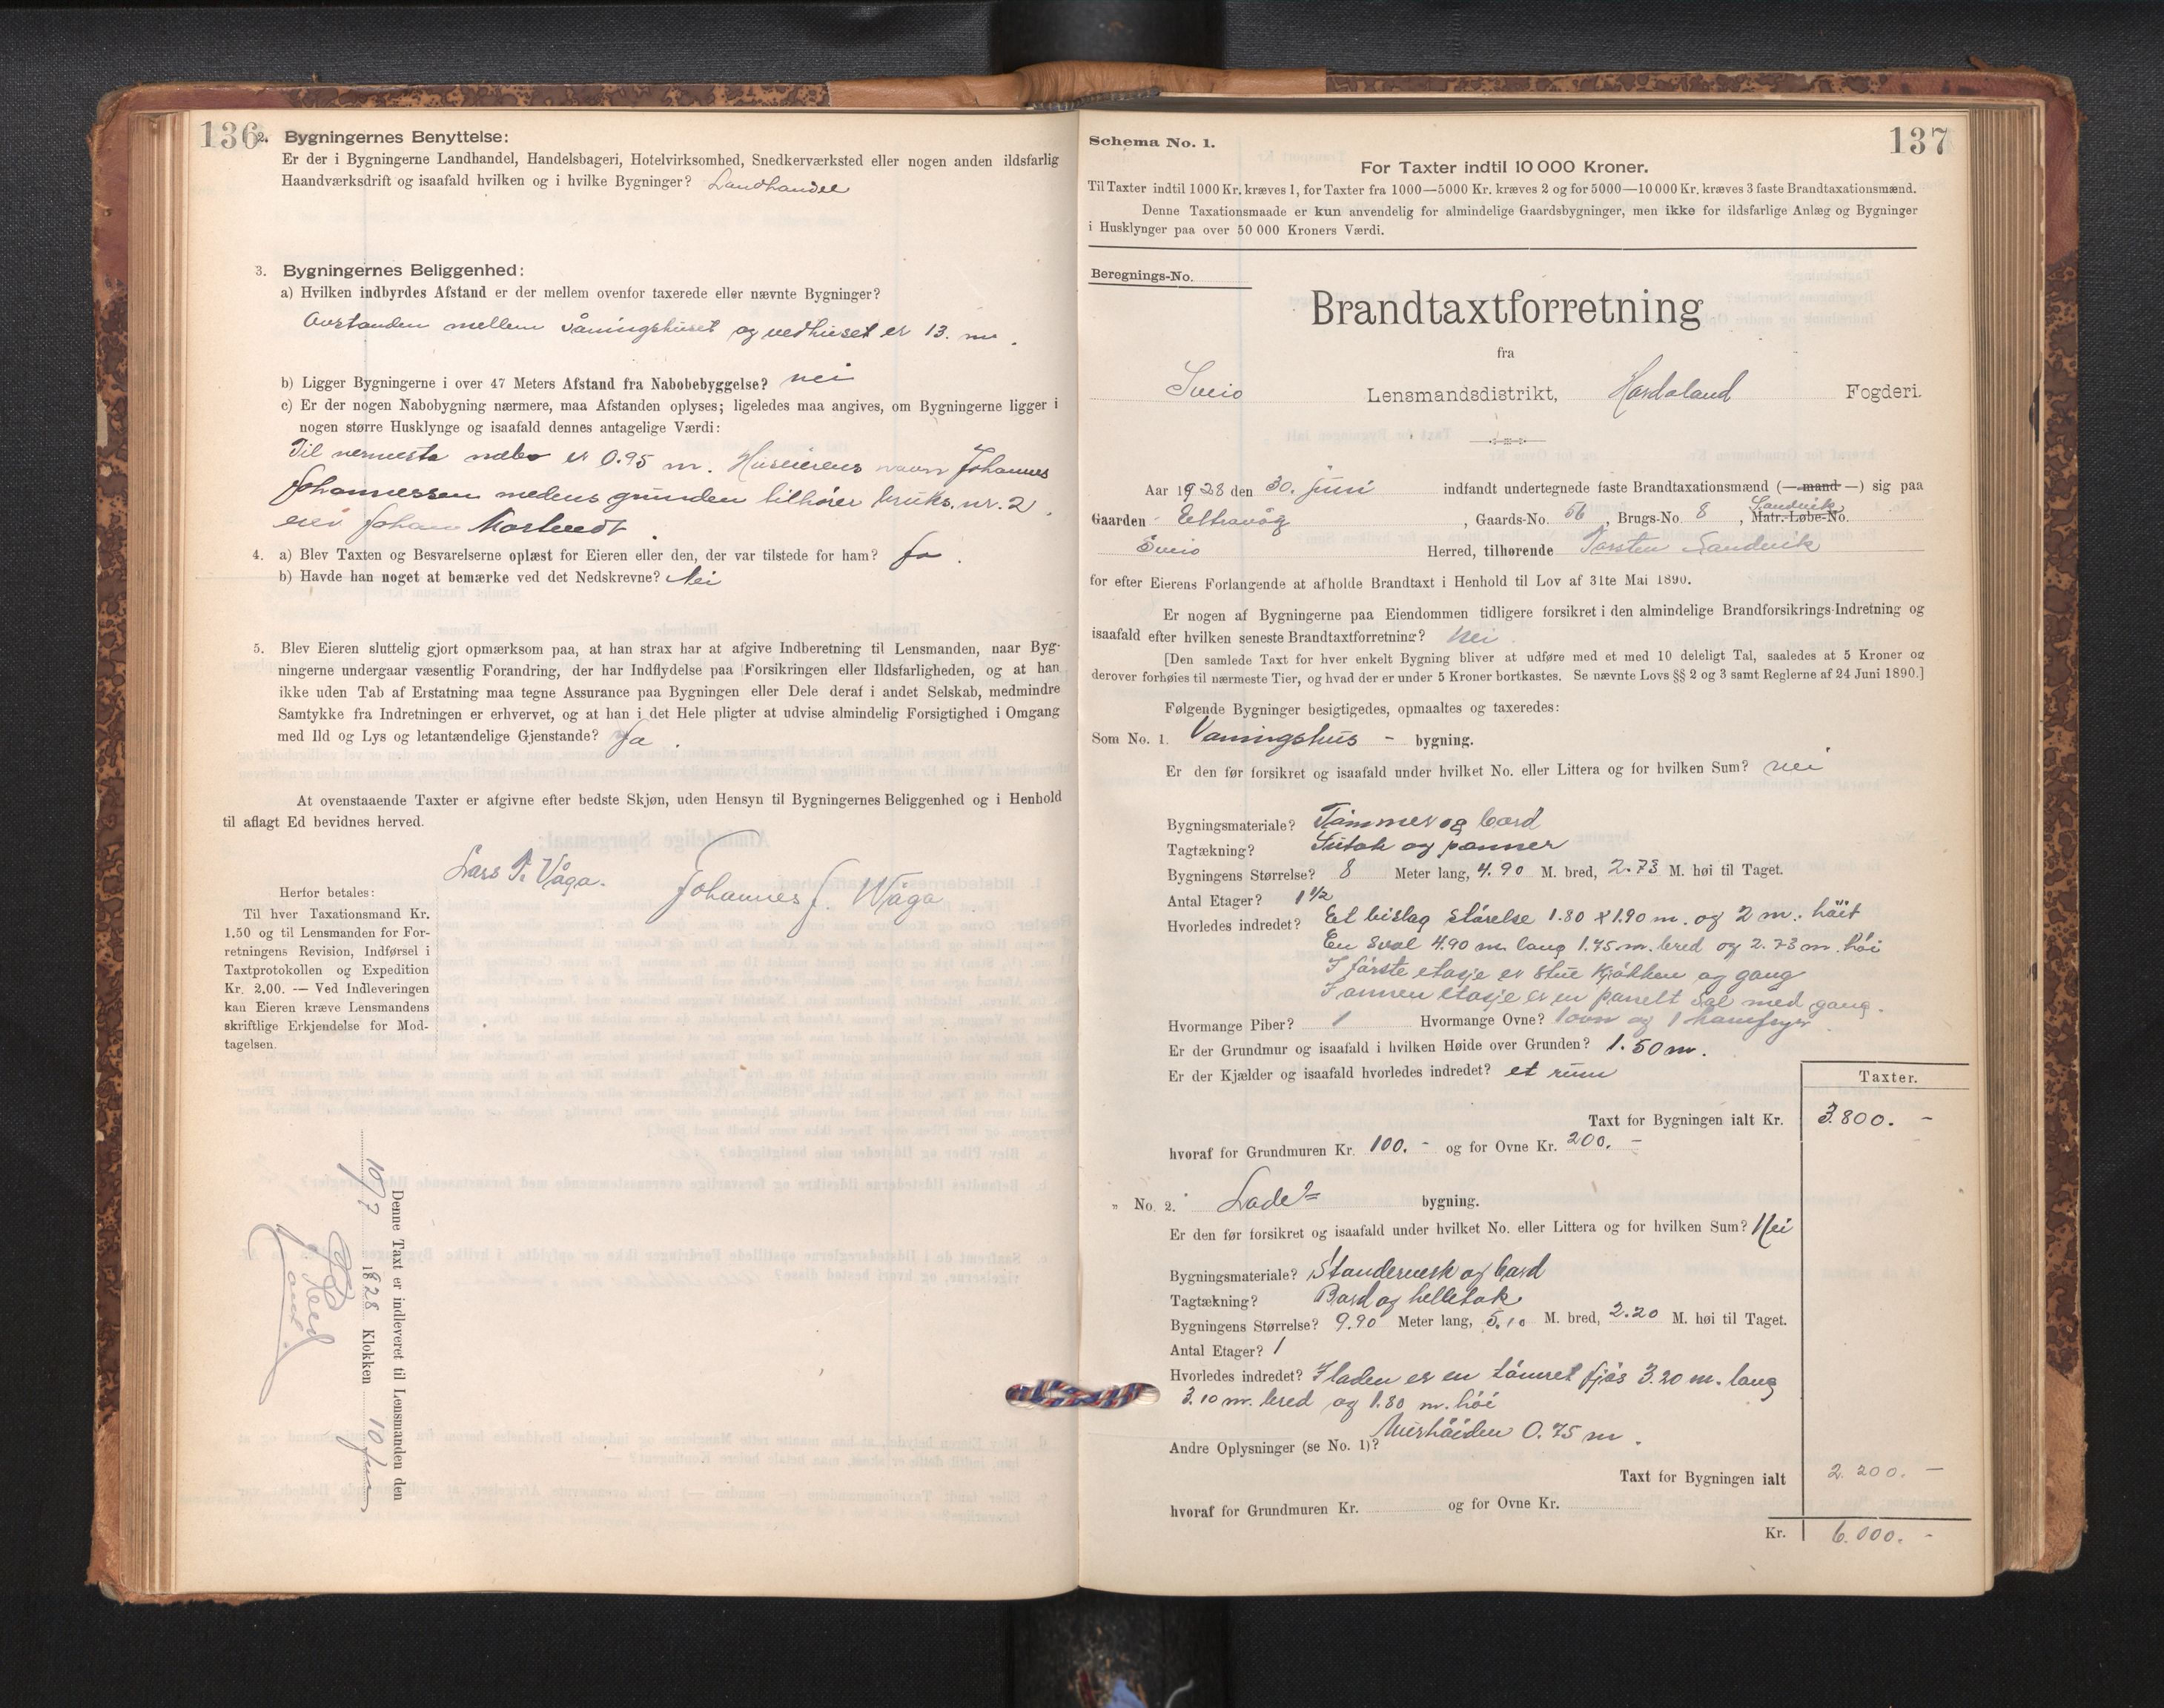 136
2. Bygningernes Benyttelse:
Er der i Bygningerne Landhandel, Handelsbageri, Hotelvirksomhed, Snedkerværksted eller nogen anden ildsfarlig
Haandværksdrift og isaafald hvilken og i hvilke Bygninger? Landhandel
3. Bygningernes Beliggenhed:
a) Hvilken indbyrdes Afstand er der mellem ovenfor taxerede eller nævnte Bygninger?
Avstanden mellem våningshuset og vedhuset er 13. m.
b) Ligger Bygningerne i over 47 Meters Afstand fra Nabobebyggelse? nei
c) Er der nogen Nabobygning nærmere, maa Afstanden oplyses; ligeledes maa angives, om Bygningerne ligger i
nogen større Husklynge og isaafald dennes antagelige Værdi:
Til nermeste nabo er 0.95 m. Huseierens navn Johannes
Johannessen medens grunden tilhører bruks. nr. 2.
eier Johan
4. a) Blev Taxten og Besvarelserne oplæst for Eieren eller den, der var tilstede for ham? Ja.
b) Havde han noget at bemærke ved det Nedskrevne? Nei
5. Blev Eieren sluttelig gjort opmærksom paa, at han strax har at afgive Indberetning til Lensmanden, naar Byg-
ningerne undergaar væsentlig Forandring, der har Indflydelse paa Forsikringen eller Ildsfarligheden, og at han
ikke uden Tab af Erstatning maa tegne Assurance paa Bygningen eller Dele deraf i andet Selskab, medmindre
Samtykke fra Indretningen er erhvervet, og at han i det Hele pligter at udvise almindelig Forsigtighed i Omgang
med Ild og Lys og letantændelige Gjenstande? Ja.
At ovenstaaende Taxter er afgivne efter bedste Skjøn, uden Hensyn til Bygningernes Beliggenhed og i Henhold
til aflagt Ed bevidnes herved.
Lars T. Våga. Johannes J. Våga
Herfor betales:
Til hver Taxationsmand Kr.
1.50 og til Lensmanden for For-
retningens Revision, Indførsel i
Taxtprotokollen og Expedition
Kr. 2.00. — Ved Indleveringen
kan Eieren kræve Lensmandens
skriftlige Erkjendelse for Mod-
tagelsen.
Denne Taxt er indleveret til Lensmanden den
10/7 1928 Klokken 10 fm
137
Schema No. 1.
For Taxter indtil 10 000 Kroner.
Til Taxter indtil 1000 Kr. kræves 1, for Taxter fra 1000—5000 Kr. kræves 2 og for 5000—10 000 Kr. kræves 3 faste Brandtaxationsmænd.
Denne Taxationsmaade er kun anvendelig for almindelige Gaardsbygninger, men ikke for ildsfarlige Anlæg og Bygninger
i Husklynger paa over 50 000 Kroners Værdi.
Beregnings-No.
Brandtaxtforretning
fra
Sveio Lensmandsdistrikt, Hordaland Fogderi.
Aar 1928 den 30. juni indfandt undertegnede faste Brandtaxationsmænd (— mand —) sig paa
Gaarden Eltravåg, Gaards-No. 56, Brugs-No. 8, Sandvik Matr.-Løbe-No.
Sveio Herred, tilhørende Torsten Sandvik
for efter Eierens Forlangende at afholde Brandtaxt i Henhold til Lov af 31te Mai 1890.
Er nogen af Bygningerne paa Eiendommen tidligere forsikret i den almindelige Brandforsikrings-Indretning og
isaafald efter hvilken seneste Brandtaxtforretning? Nei.
[Den samlede Taxt for hver enkelt Bygning bliver at udføre med et med 10 deleligt Tal, saaledes at 5 Kroner og
derover forhøies til nærmeste Tier, og hvad der er under 5 Kroner bortkastes. Se nævnte Lovs §§ 2 og 3 samt Reglerne af 24 Juni 1890.]
Følgende Bygninger besigtigedes, opmaaltes og taxeredes:
Som No. 1. Vaningshus - bygning.
Er den før forsikret og isaafald under hvilket No. eller Littera og for hvilken Sum? nei
Bygningsmateriale? Tømmer og bord
Tagtækning? Sutak og panner
Bygningens Størrelse? 8 Meter lang, 4.90 M. bred, 2.73 M. høi til Taget.
Antal Etager? 1 1/2
Hvorledes indredet? Et bislag størelse 1.80 x 1.90 m. og 2 m. høit
En sval 4.90 m. lang 1.75 m. bred og 2.73 m. høi
I første etasje er stue kjøkken og gang
I annen etasje er en panelt sal med gang.
Hvormange Piber? 1 Hvormange Ovne? 1 ovn og 1 komfyr
Er der Grundmur og isaafald i hvilken Høide over Grunden? 1.50 m.
Er der Kjælder og isaafald hvorledes indredet? et rum
Taxter.
Taxt for Bygningen ialt Kr. 3.800. -
hvoraf for Grundmuren Kr. 100. - og for Ovne Kr. 200. -
" No. 2. Lade bygning.
Er den før forsikret og isaafald under hvilket No. eller Littera og for hvilken Sum? Nei
Bygningsmateriale? Standerverk og bord
Tagtækning? Bord og helletak
Bygningens Størrelse? 9.90 Meter lang, 5.10 M. bred, 2.20 M. høi til Taget.
Antal Etager? 1
Hvorledes indredet? I laden er en tømret fjøs 3.20 m. lang
3.10 m. bred og 1.80 m. høi
Murhøiden 0.75 m.
Andre Oplysninger (se No. 1)?
Taxt for Bygningen ialt 2.200. -
hvoraf for Grundmuren Kr. og for Ovne Kr.
Kr. 6.000. -